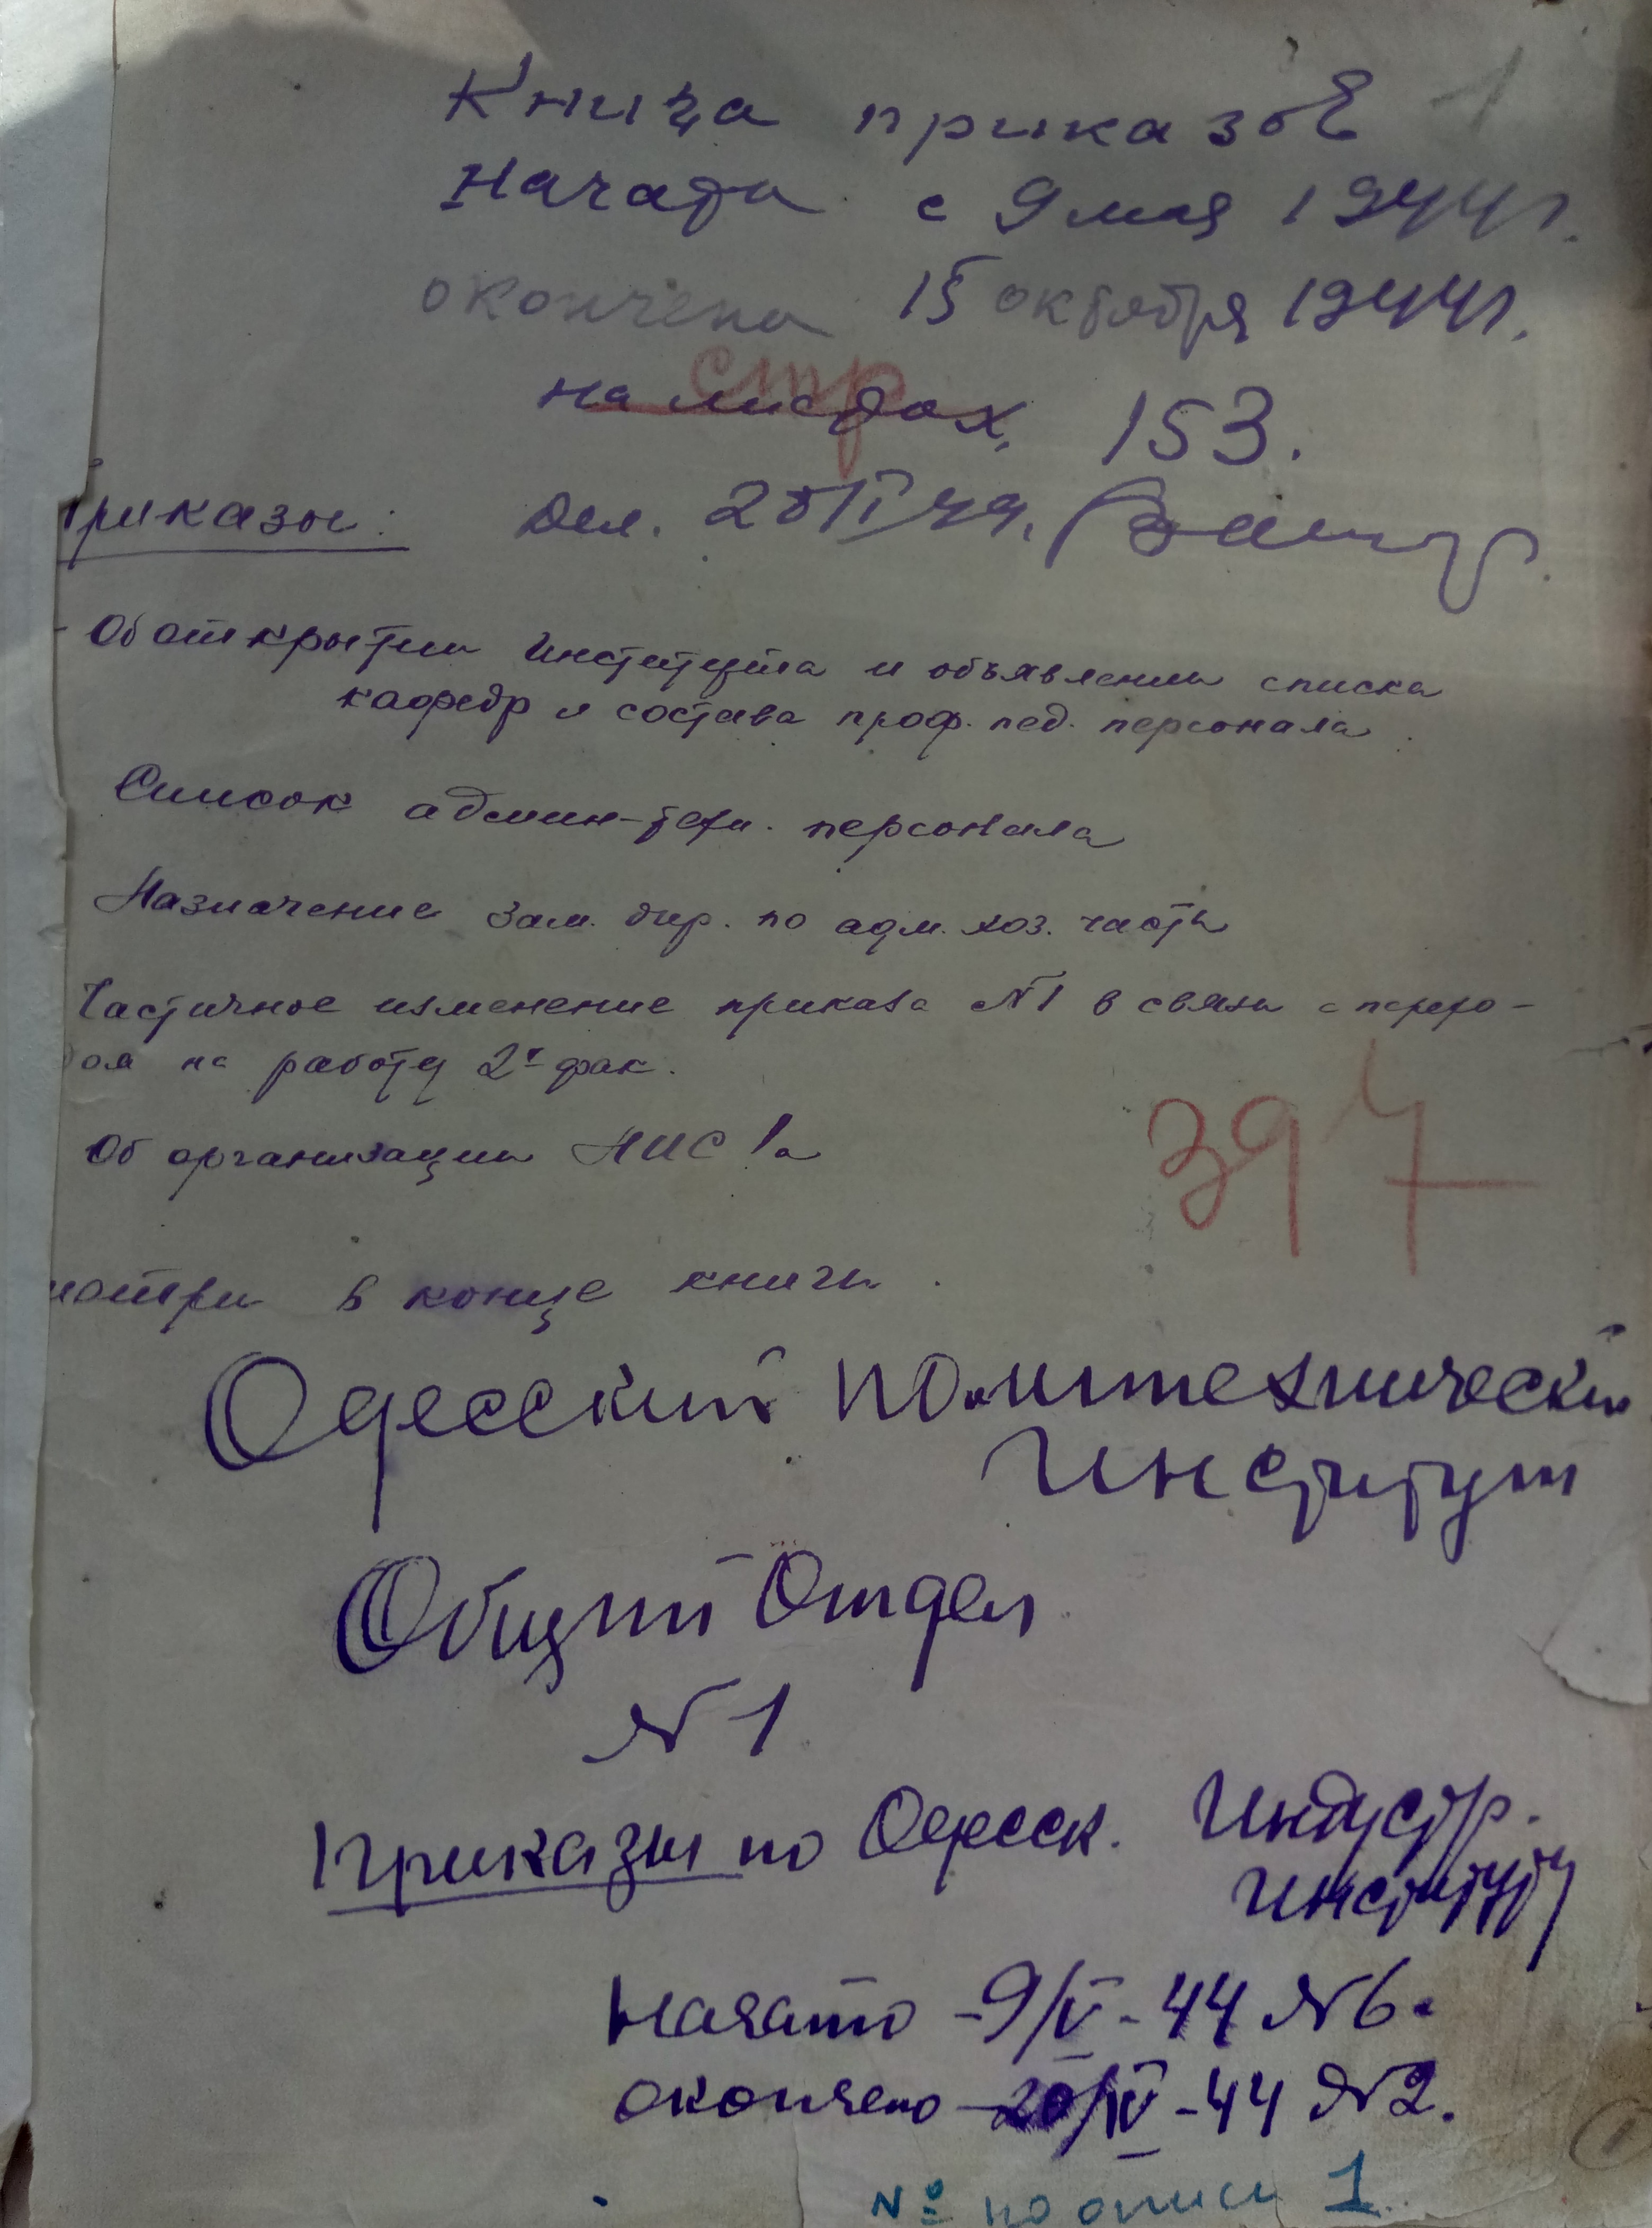 1
Книга приказов
Начата с 9 мая 1944 г.
окончена 15 октября 1944 г.
стр
на листах, 153.
Приказы:
Об открытии Института и объявлении списка
кафедр и состава проф. пед. персонала.
Список админ-техн. персонала
Назначение зам. дир. по адм. хоз. части
Частичное изменение приказа №1 в связи с перехо-
дом на работу 2х фак.
Об организации НИС'а
397
мотри в конце книги.
Одесский политехнический
Институт
Общий Отдел
№1
Приказы по Одесск. Индустр.
институту
Начато - 9/V - 44 №6.
окончено - 20/IV - 44 №2.
1
№ по описи 1